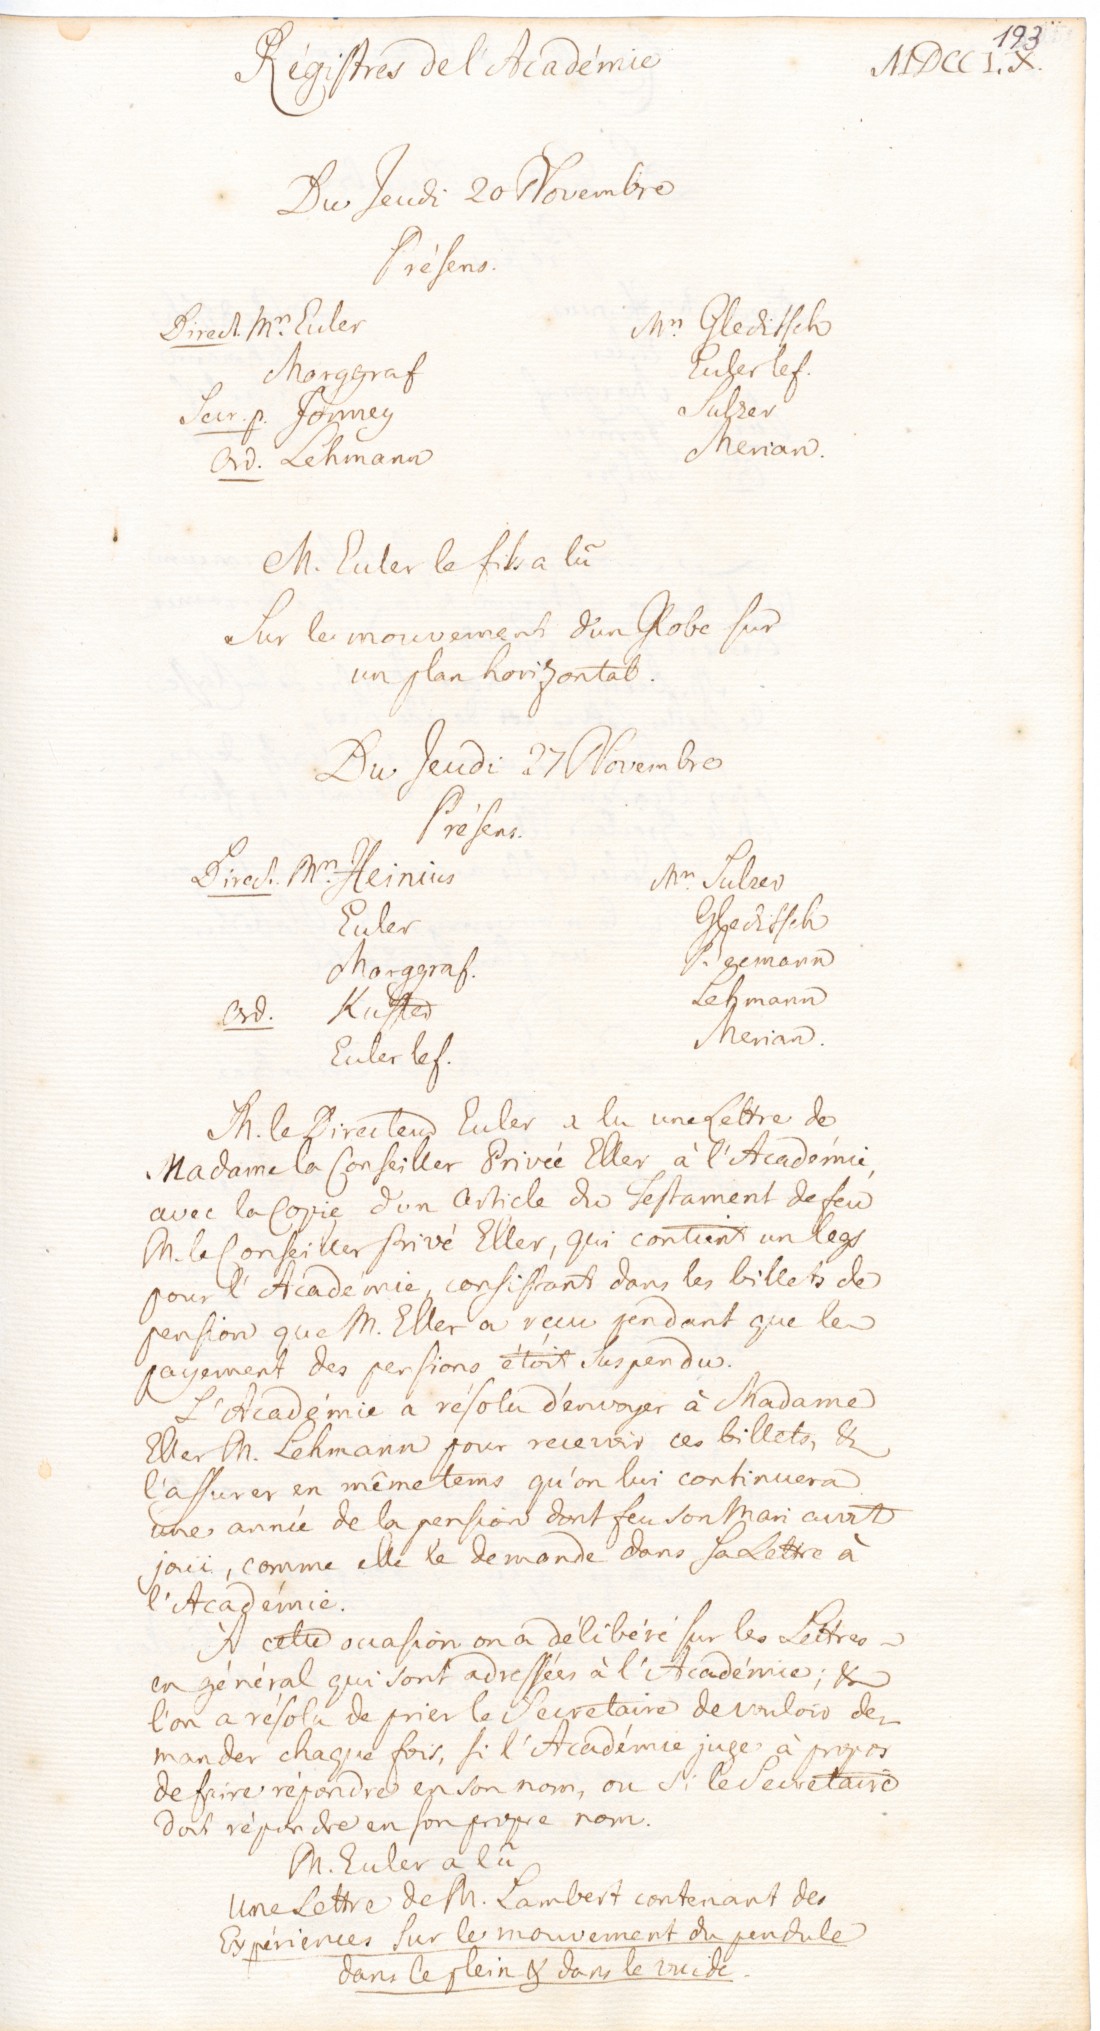 193
Régistres de l'Académie MDCCLX.
Du Jeudi 20 Novembre
Présens.
Direct. Mrs. Euler Mrs Gleditsch
Marggraf Euler le f.
Secr. p. Formey Sulzer
Ord. Lehmann Merian.
M. Euler le fils a lû
Sur le mouvement d'un Globe sur
un plan horizontal.
Du Jeudi 27 Novembre
Présens.
Direct. Mrs. Heinius Mrs. Sulzer
Euler Gleditsch
Marggraf. Begemann
Ord. Kuster Lehmann
Euler le f. Merian.
M. le Directeur Euler a lu une Lettre de
Madame la Conseiller Privée Eller à l'Académie,
avec la Copie d'un article du Testament de feu
M. le Conseiller Privé Eller, qui contient un legs
pour l'Académie, consistant dans les billets de
pension que M. Eller a reçu pendant que le
payement des pensions étoit suspendu.
L'Académie a résolu d'envoyer à Madame
Eller M. Lehmann pour recevoir ces billets, &
l'assurer en même tems qu'on lui continuera
une année de la pension dont feu son Mari avoit
joui, comme elle le demande dans sa Lettre à
l'Académie.
A cette occasion on a délibéré sur les Lettres
en général qui sont adressées à l'Académie; &
l'on a résolu de prier le Secretaire de vouloir de-
mander chaque fois, si l'Académie juge à propos
de faire répondre en son nom, ou si le Secretaire
doit répondre en son propre nom.
M. Euler a lû
une Lettre de M. Lambert contenant des
Expériences sur le mouvement du pendule
dans le plein & dans le vuide.